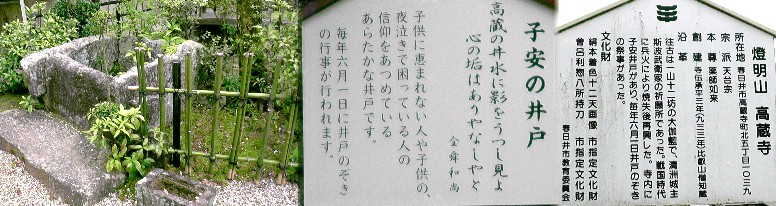 子安の井戸
高蔵の井水に影をうつし見よ
心の垢はありやなしやと
全舜和尚
子供に恵まれない人や子供の、
夜泣きで困っている人の
信仰をあつめている
あらたかな井戸です。
毎年六月一日に井戸のぞき
の行事が行われます。
燈明山 高蔵寺
所在地 春日井市高蔵寺町北五丁目一〇三九
宗派 天台宗
本尊 薬師如来
創建 寺伝承平三年(九三三年)比叡山僧知蔵
沿革
往古は一山十三坊の大伽藍で、清洲城主
斯波武衛家の祈願所であった。戦国時代
に兵火により焼失後再興した。寺内に
子安井戸があり、毎年六月一日井戸のぞき
の祭事があった。
文化財
絹本着色十二天画像 市指定文化財
曾呂利惣八所持刀 市指定文化財
春日井市教育委員会